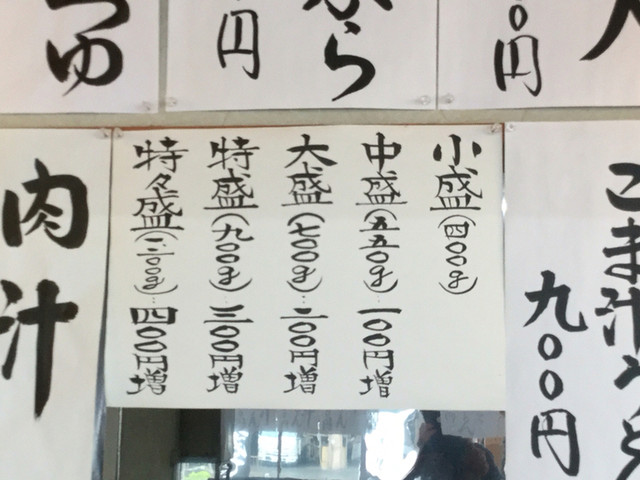 〇円
ぷら
円
つゆ
ごま汁うど
九〇〇円
小盛(四〇〇g)
中盛(五五〇g)…一〇〇円増
大盛(七〇〇g)…二〇〇円増
特盛(九〇〇g)…三〇〇円増
特々盛(一二〇〇g)…四〇〇円増
肉汁